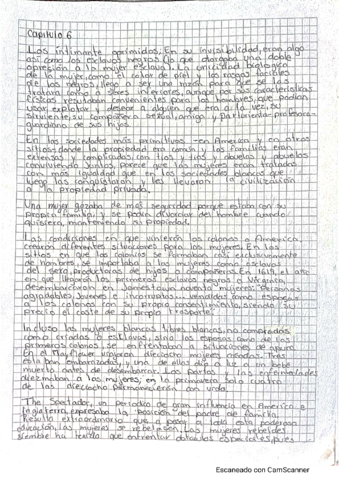 Capitulo 6
Los intimante oprimidos; En su invisibilidad, eran algo
asi como los esclavos negros (lo que otorgaba una doble
opresion a la mujer esclava). La unicidad biologica
de la mujer, como el color de piel y los rasgos faciales
de los negros, llego a ser una razón para que se les
tratara como a seres inferiores, aunque por sus caracteristicas
fisicas resultaban convenientes para los hombres, que podían
usar, explotar y desear a alguien que era a la vez, su
sirviente, su compañera sexual, amiga, y portante-profesora-
guardiana de sus hijos.
En las sociedades mas primitivas -en America y en otros
sitios- donde la propiedad era común y las familias eran
extensas y complicadas con tias y tios y abuelas y abuelos
conviviendo juntos, parece que las mujeres eran tratadas
con mas igualdad que en las sociedades blancas que
luego las conquistaron y les llevaron la civilización
a la propiedad privada.
Una mujer gozaba de mas seguridad porque estaba con su
propia familia, y se podia divorciar del hombre cuando
quisiera, manteniendo su propiedad.
Las condiciones en que vinieron los colonos a America,
crearon diferentes situaciones para las mujeres. En los
sitios en que las colonias se formaban casi exclusivamente
de hombres, se importaba a las mujeres como esclavas
del sexo, productoras de hijos o compañeras. En 1619, el año
en que llegaron los primeros esclavos negros a Virginia,
desembarcaron en Jamestown noventa mujeres: Personas
agradables, jovenes e incorruptas... vendidas como esposas
a los colonos con su propio consentimiento, siendo su
precio el coste de su propio trasporte.
Incluso las mujeres blancas libres blancas, no compradas
como criadas o esclavas, sino las esposas como de los
primeros colonos se enfrentaban a situaciones de apuro
En el Mayflower viajaron dieciocho mujeres casadas. Tres
estaban embarazadas, y una de ellas dio a luz a un bebe
muerto antes de desembarcar. Los partos y las enfermedades
diezmaban a las mujeres; en la primavera solo cuatro
de las dieciocho permanecieron con vida.
The Spectator, un periodico de gran influencia en America e
Inglaterra, expresaba la posición del padre de familia.
Resulta extraordinario que a pesar a toda esta poderosa
educación, las mujeres se rebelasen. Las mujeres rebeldes
siembre ha tenido que enfrentar obstaculos especiales, pues
Escaneado con CamScanner